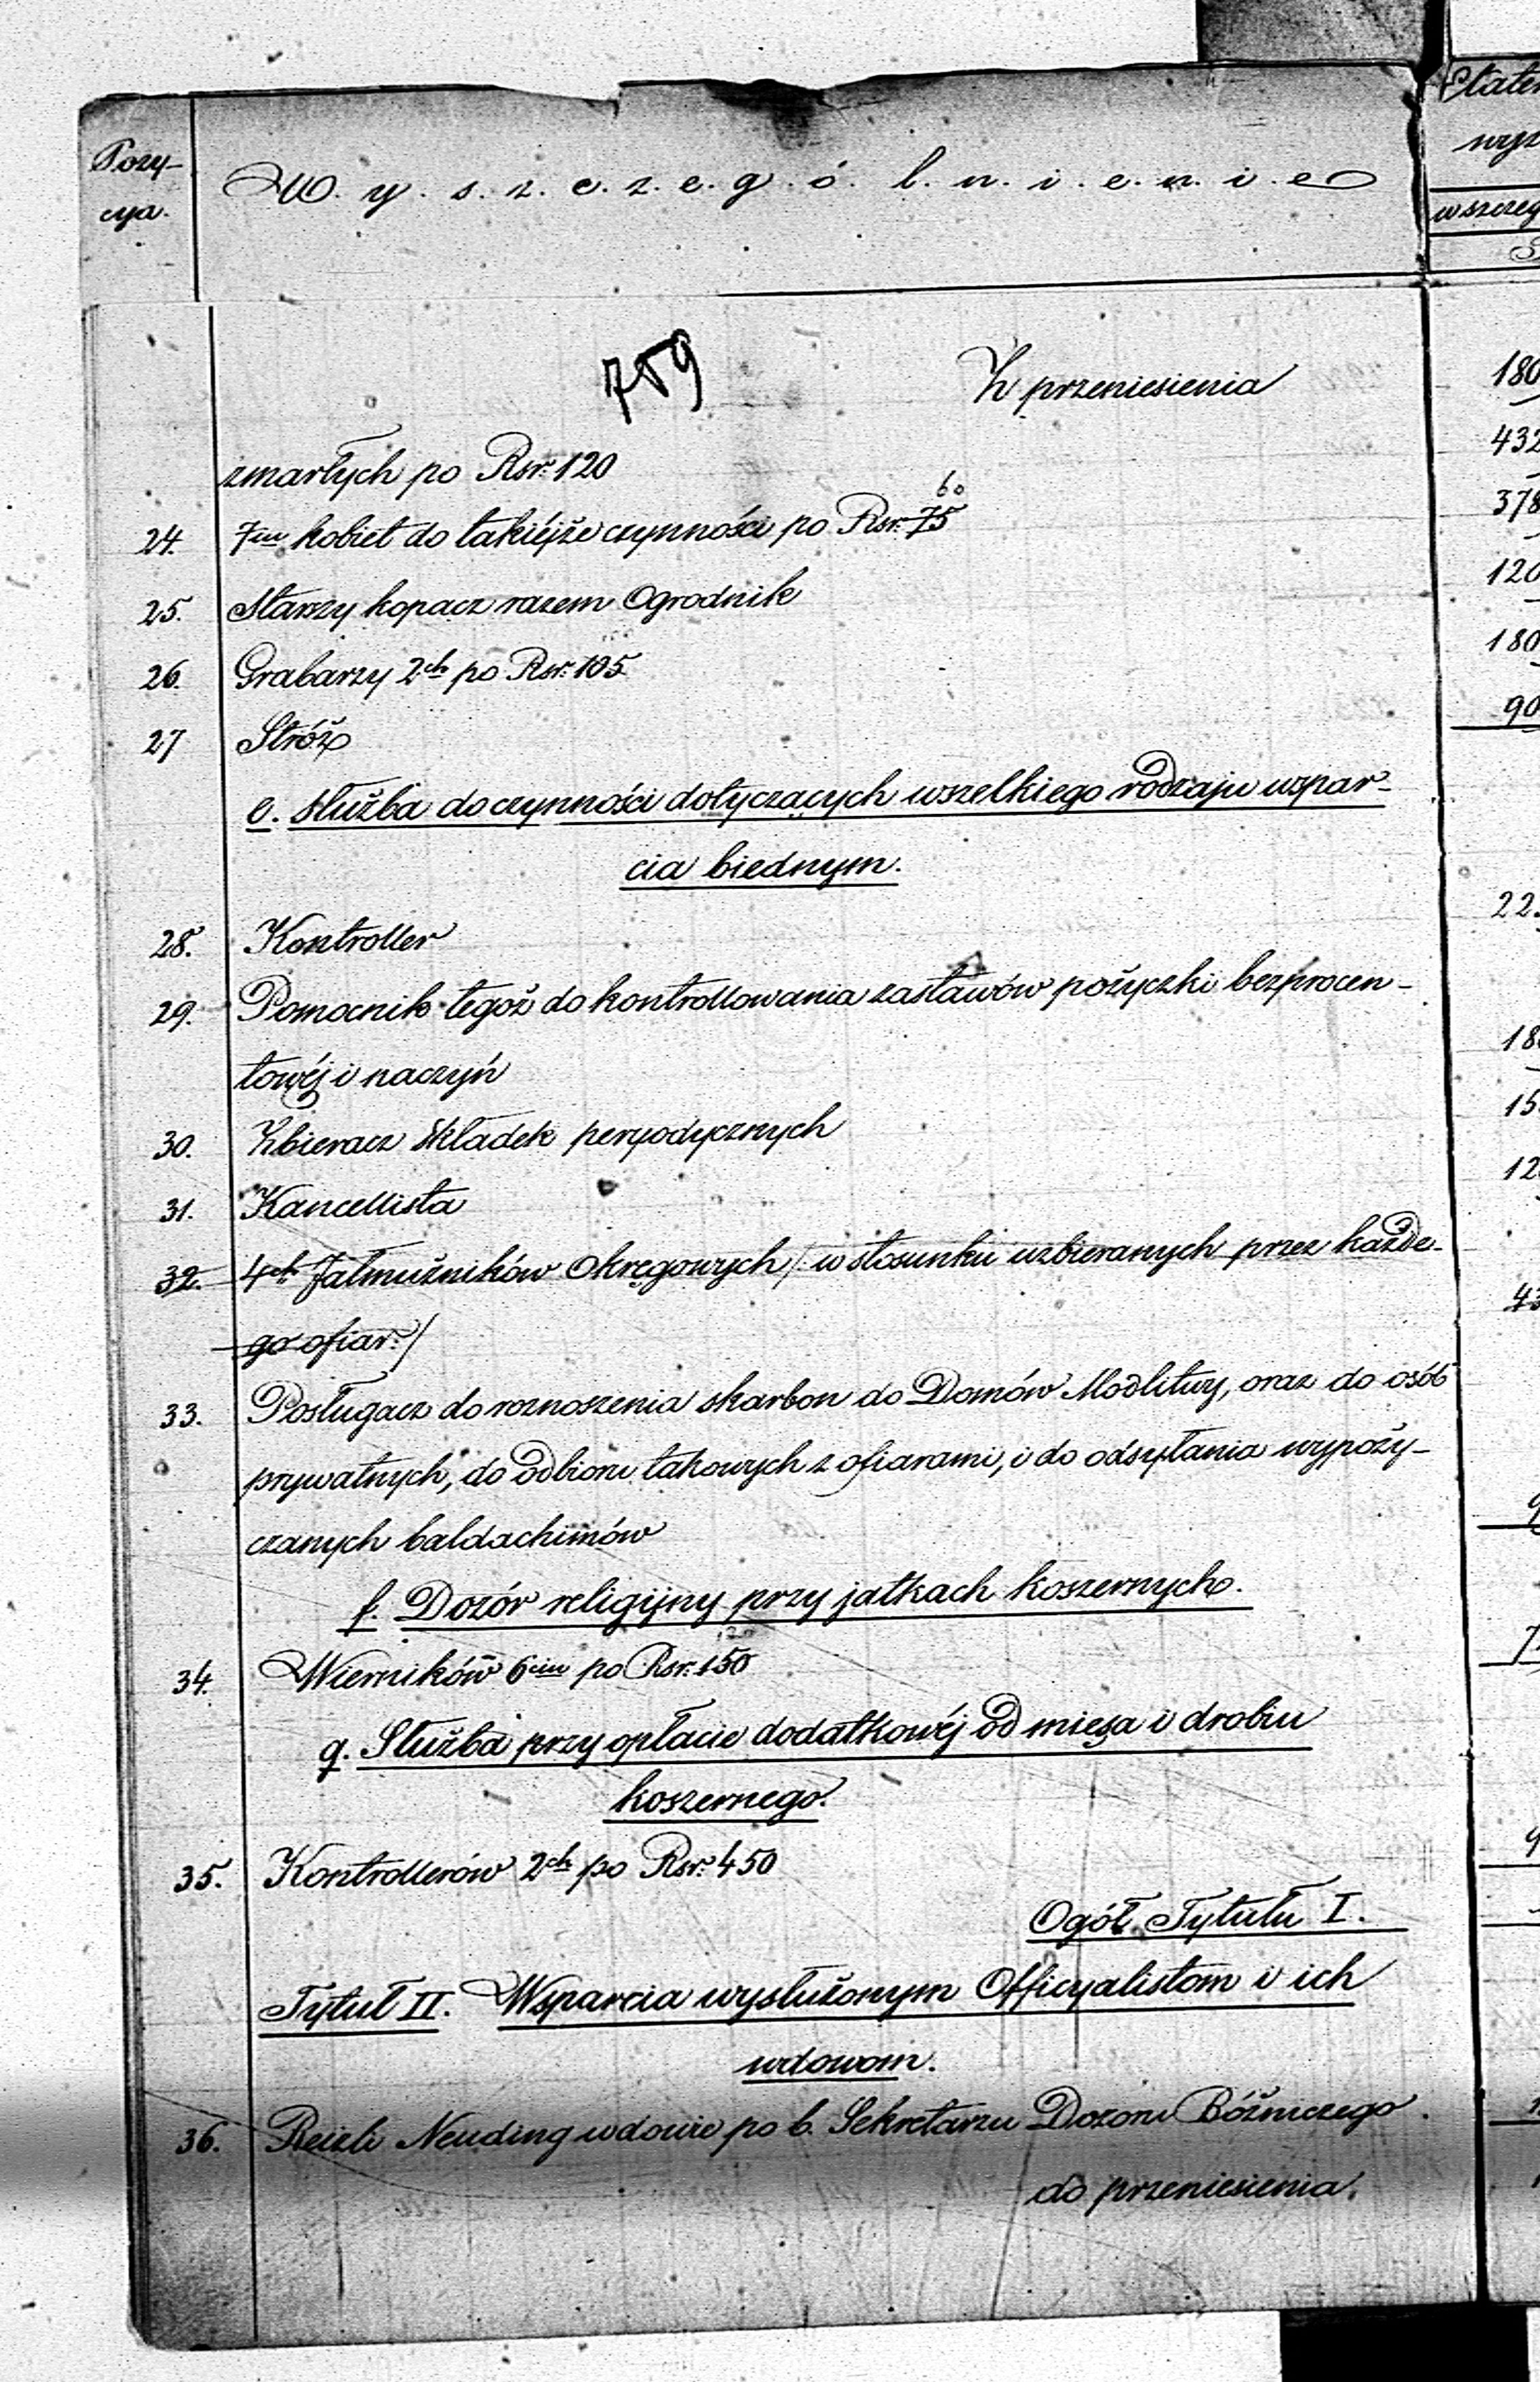 Pozy-
cya.
W.y.s.z.c.z.e.g.ó.l.n.i.e.n.i.e
wszczeg
759
Z przeniesienia
180
zmarłych po Rsr. 120
432
60
24. 7miu kobiet do takiéjże czynności po Rsr. 75
378
25. Starszy kopacz razem Ogrodnik
120
26. Grabarzy 2ch po Rsr. 105
180
27 Stróż
90
e. Służba do czynności dotyczących wszelkiego rodzaju wspar-
cia biednym.
28. Kontroller
22
29. Pomocnik tegoż do kontrollowania zastawów pożyczki bezprocen-
towéj i naczyń
18
30. Zbieracz składek peryodycznych
15
31. Kancellista
12
32. 4ch Jałmużników Okręgowych /w stosunku uzbieranych przez każde-
go ofiar./
43
33. Posługacz do roznoszenia skarbon do Domów Modlitwy, oraz do osób
prywatnych, do odbioru takowych z ofiarami, i do odsyłania wypoży-
czanych baldachimów
9
f. Dozór religijny przy jatkach koszernych.
34. Wierników 6ciu po Rsr. 150
7
g. Służba przy opłacie dodatkowéj od mięsa i drobiu
koszernego.
35. Kontrollerów 2ch po Rsr. 450
9
Ogół Tytułu I.
Tytuł II. Wsparcia wysłużonym Officyalistom i ich
wdowom.
36. Reizli Neuding wdowie po b. Sekretarzu Dozoru Bóżniczego.
do przeniesienia.